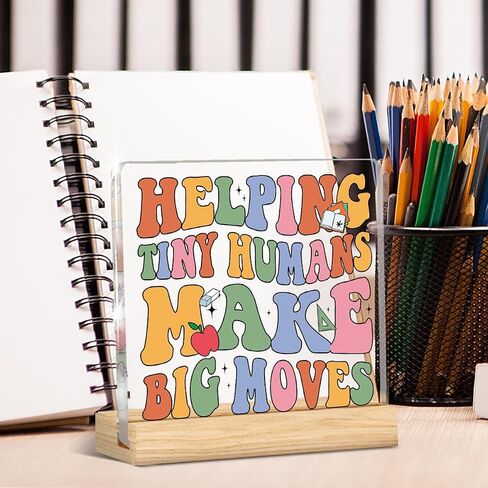 HELPING
TINY HUMANS
MAKE
BIG MOVES